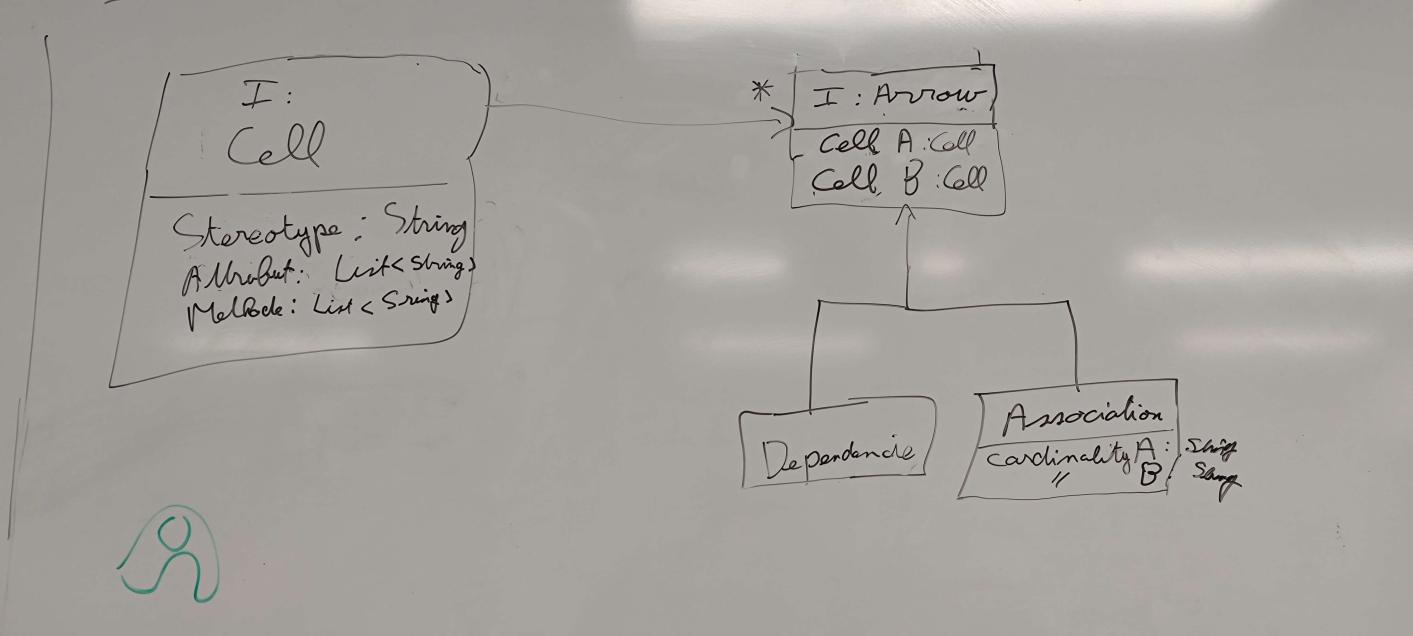 I:
Cell
Stereotype: String
Attribut: List<String>
Methode: List<Sring>
*
I: Arrow
Cell A:Cell
Cell B:Cell
Dependencie
Association
Cardinality A: String
" B: String